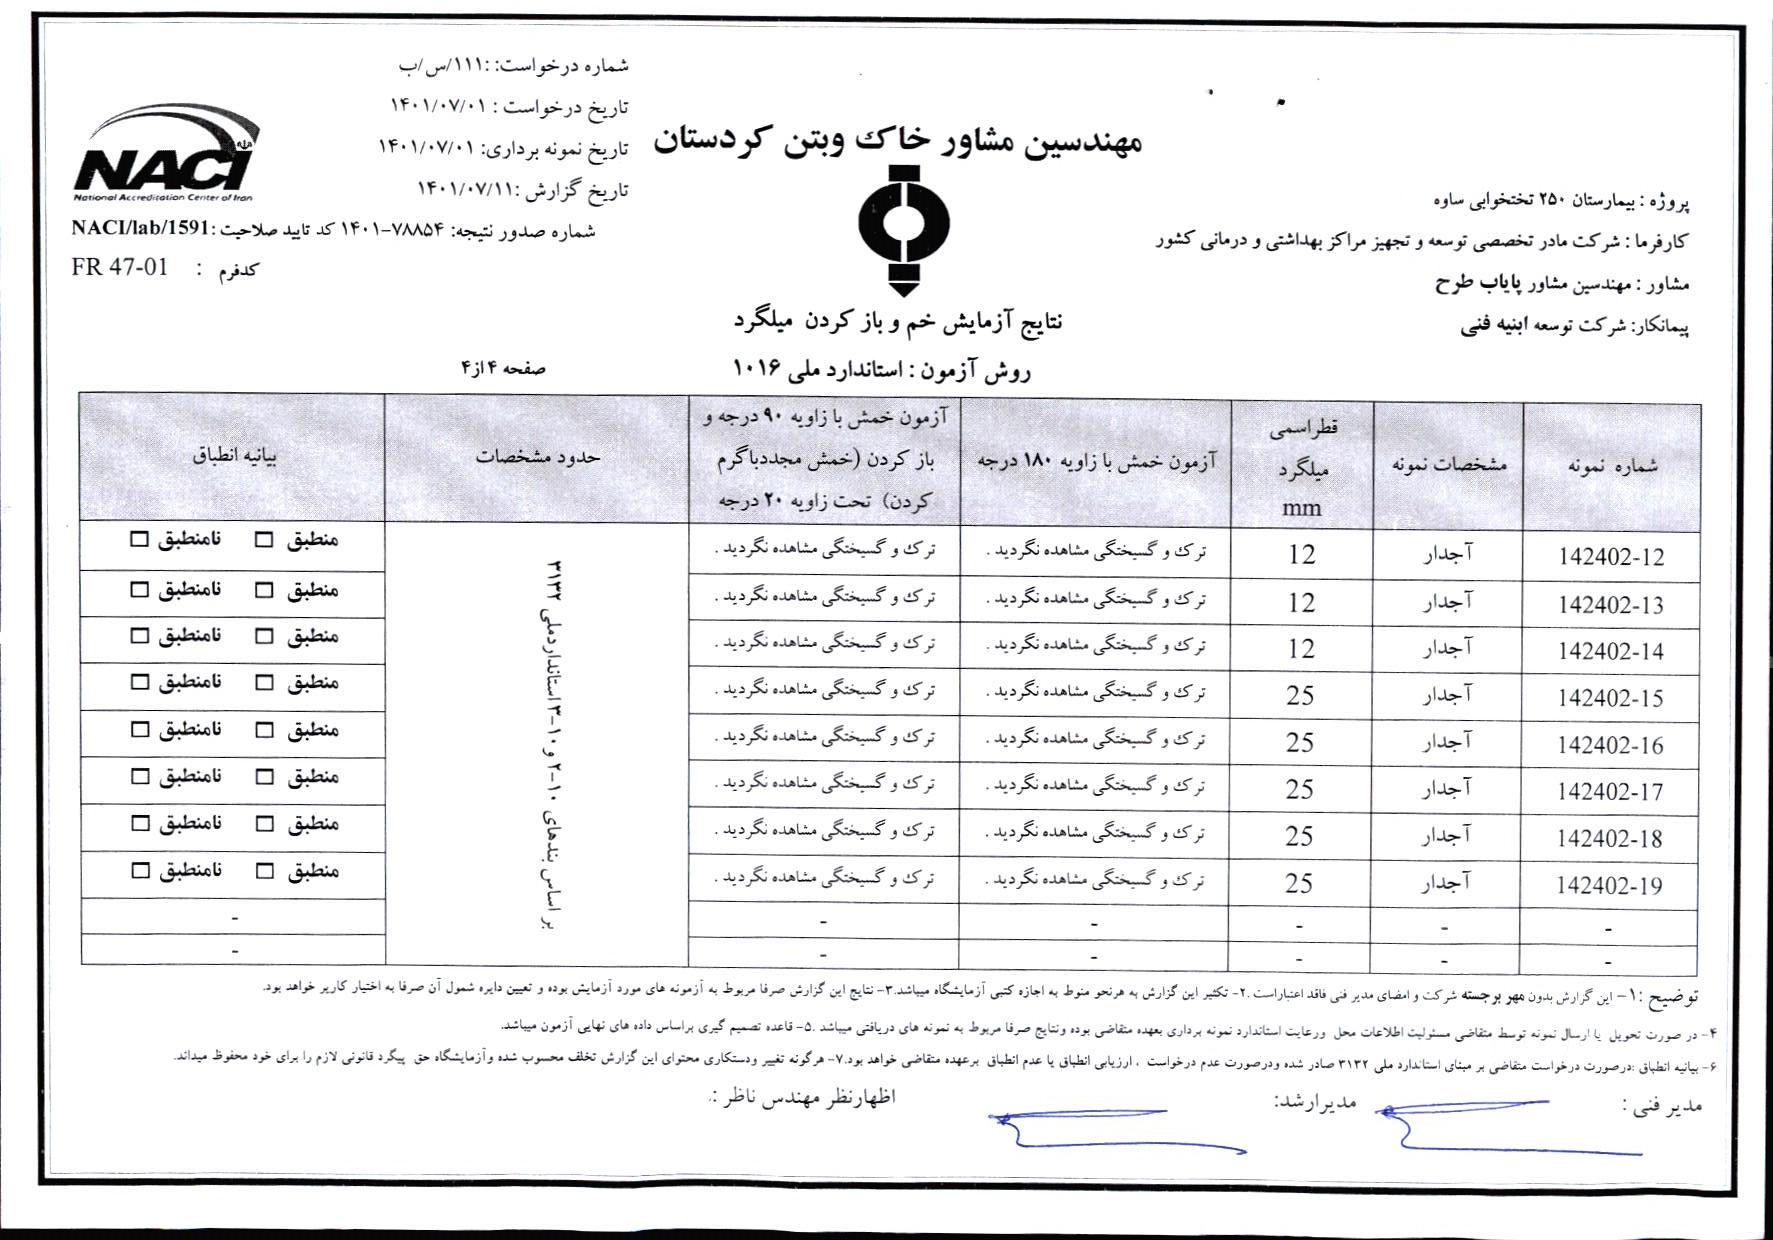 شماره درخواست: :۱۱۱/س/ب
تاریخ درخواست : ۱۴۰۱/۰۷/۰۱
تاریخ نمونه برداری: ۱۴۰۱/۰۷/۰۱
تاریخ گزارش :۱۴۰۱/۰۷/۱۱
شماره صدور نتیجه: ۷۸۸۵۴-۱۴۰۱ کد تایید صلاحیت :NACI/lab/1591
کدفرم : FR 47-01
NACI
National Accreditation Center of Iran
مهندسین مشاور خاک وبتن کردستان
پروژه : بیمارستان ۲۵۰ تختخوابی ساوه
کارفرما : شرکت مادر تخصصی توسعه و تجهیز مراکز بهداشتی و درمانی کشور
مشاور : مهندسین مشاور پایاب طرح
پیمانکار: شرکت توسعه ابنیه فنی
نتایج آزمایش خم و باز کردن میلگرد
روش آزمون : استاندارد ملی ۱۰۱۶
صفحه ۴ از۴
شماره نمونه | مشخصات نمونه | قطراسمی میلگرد mm | آزمون خمش با زاویه ۱۸۰ درجه | آزمون خمش با زاویه ۹۰ درجه و باز کردن (خمش مجددباگرم کردن) تحت زاویه ۲۰ درجه | حدود مشخصات | بیانیه انطباق
142402-12 | آجدار | 12 | ترک و گسیختگی مشاهده نگردید . | ترک و گسیختگی مشاهده نگردید . | منطبق ☐ نامنطبق ☐
142402-13 | آجدار | 12 | ترک و گسیختگی مشاهده نگردید . | ترک و گسیختگی مشاهده نگردید . | منطبق ☐ نامنطبق ☐
142402-14 | آجدار | 12 | ترک و گسیختگی مشاهده نگردید . | ترک و گسیختگی مشاهده نگردید . | منطبق ☐ نامنطبق ☐
142402-15 | آجدار | 25 | ترک و گسیختگی مشاهده نگردید . | ترک و گسیختگی مشاهده نگردید . | منطبق ☐ نامنطبق ☐
142402-16 | آجدار | 25 | ترک و گسیختگی مشاهده نگردید . | ترک و گسیختگی مشاهده نگردید . | منطبق ☐ نامنطبق ☐
142402-17 | آجدار | 25 | ترک و گسیختگی مشاهده نگردید . | ترک و گسیختگی مشاهده نگردید . | منطبق ☐ نامنطبق ☐
142402-18 | آجدار | 25 | ترک و گسیختگی مشاهده نگردید . | ترک و گسیختگی مشاهده نگردید . | منطبق ☐ نامنطبق ☐
142402-19 | آجدار | 25 | ترک و گسیختگی مشاهده نگردید . | ترک و گسیختگی مشاهده نگردید . | منطبق ☐ نامنطبق ☐
- | - | - | - | - | -
- | - | - | - | - | -
بر اساس بندهای ۱۰-۲ و ۱۰-۳ استانداردملی ۳۱۳۲
توضیح :۱- این گزارش بدون مهر برجسته شرکت و امضای مدیر فنی فاقد اعتباراست .۲- تکثیر این گزارش به هرنحو منوط به اجازه کتبی آزمایشگاه میباشد.۳- نتایج این گزارش صرفا مربوط به آزمونه های مورد آزمایش بوده و تعیین دایره شمول آن صرفا به اختیار کاربر خواهد بود.
۴- در صورت تحویل یا ارسال نمونه توسط متقاضی مسئولیت اطلاعات محل ورعایت استاندارد نمونه برداری بعهده متقاضی بوده ونتایج صرفا مربوط به نمونه های دریافتی میباشد .۵- قاعده تصمیم گیری براساس داده های نهایی آزمون میباشد.
۶- بیانیه انطباق :درصورت درخواست متقاضی بر مبنای استاندارد ملی ۳۱۳۲ صادر شده ودرصورت عدم درخواست ، ارزیابی انطباق یا عدم انطباق برعهده متقاضی خواهد بود.۷- هرگونه تغییر ودستکاری محتوای این گزارش تخلف محسوب شده وآزمایشگاه حق پیگرد قانونی لازم را برای خود محفوظ میداند.
مدیر فنی :
مدیرارشد:
اظهارنظر مهندس ناظر :